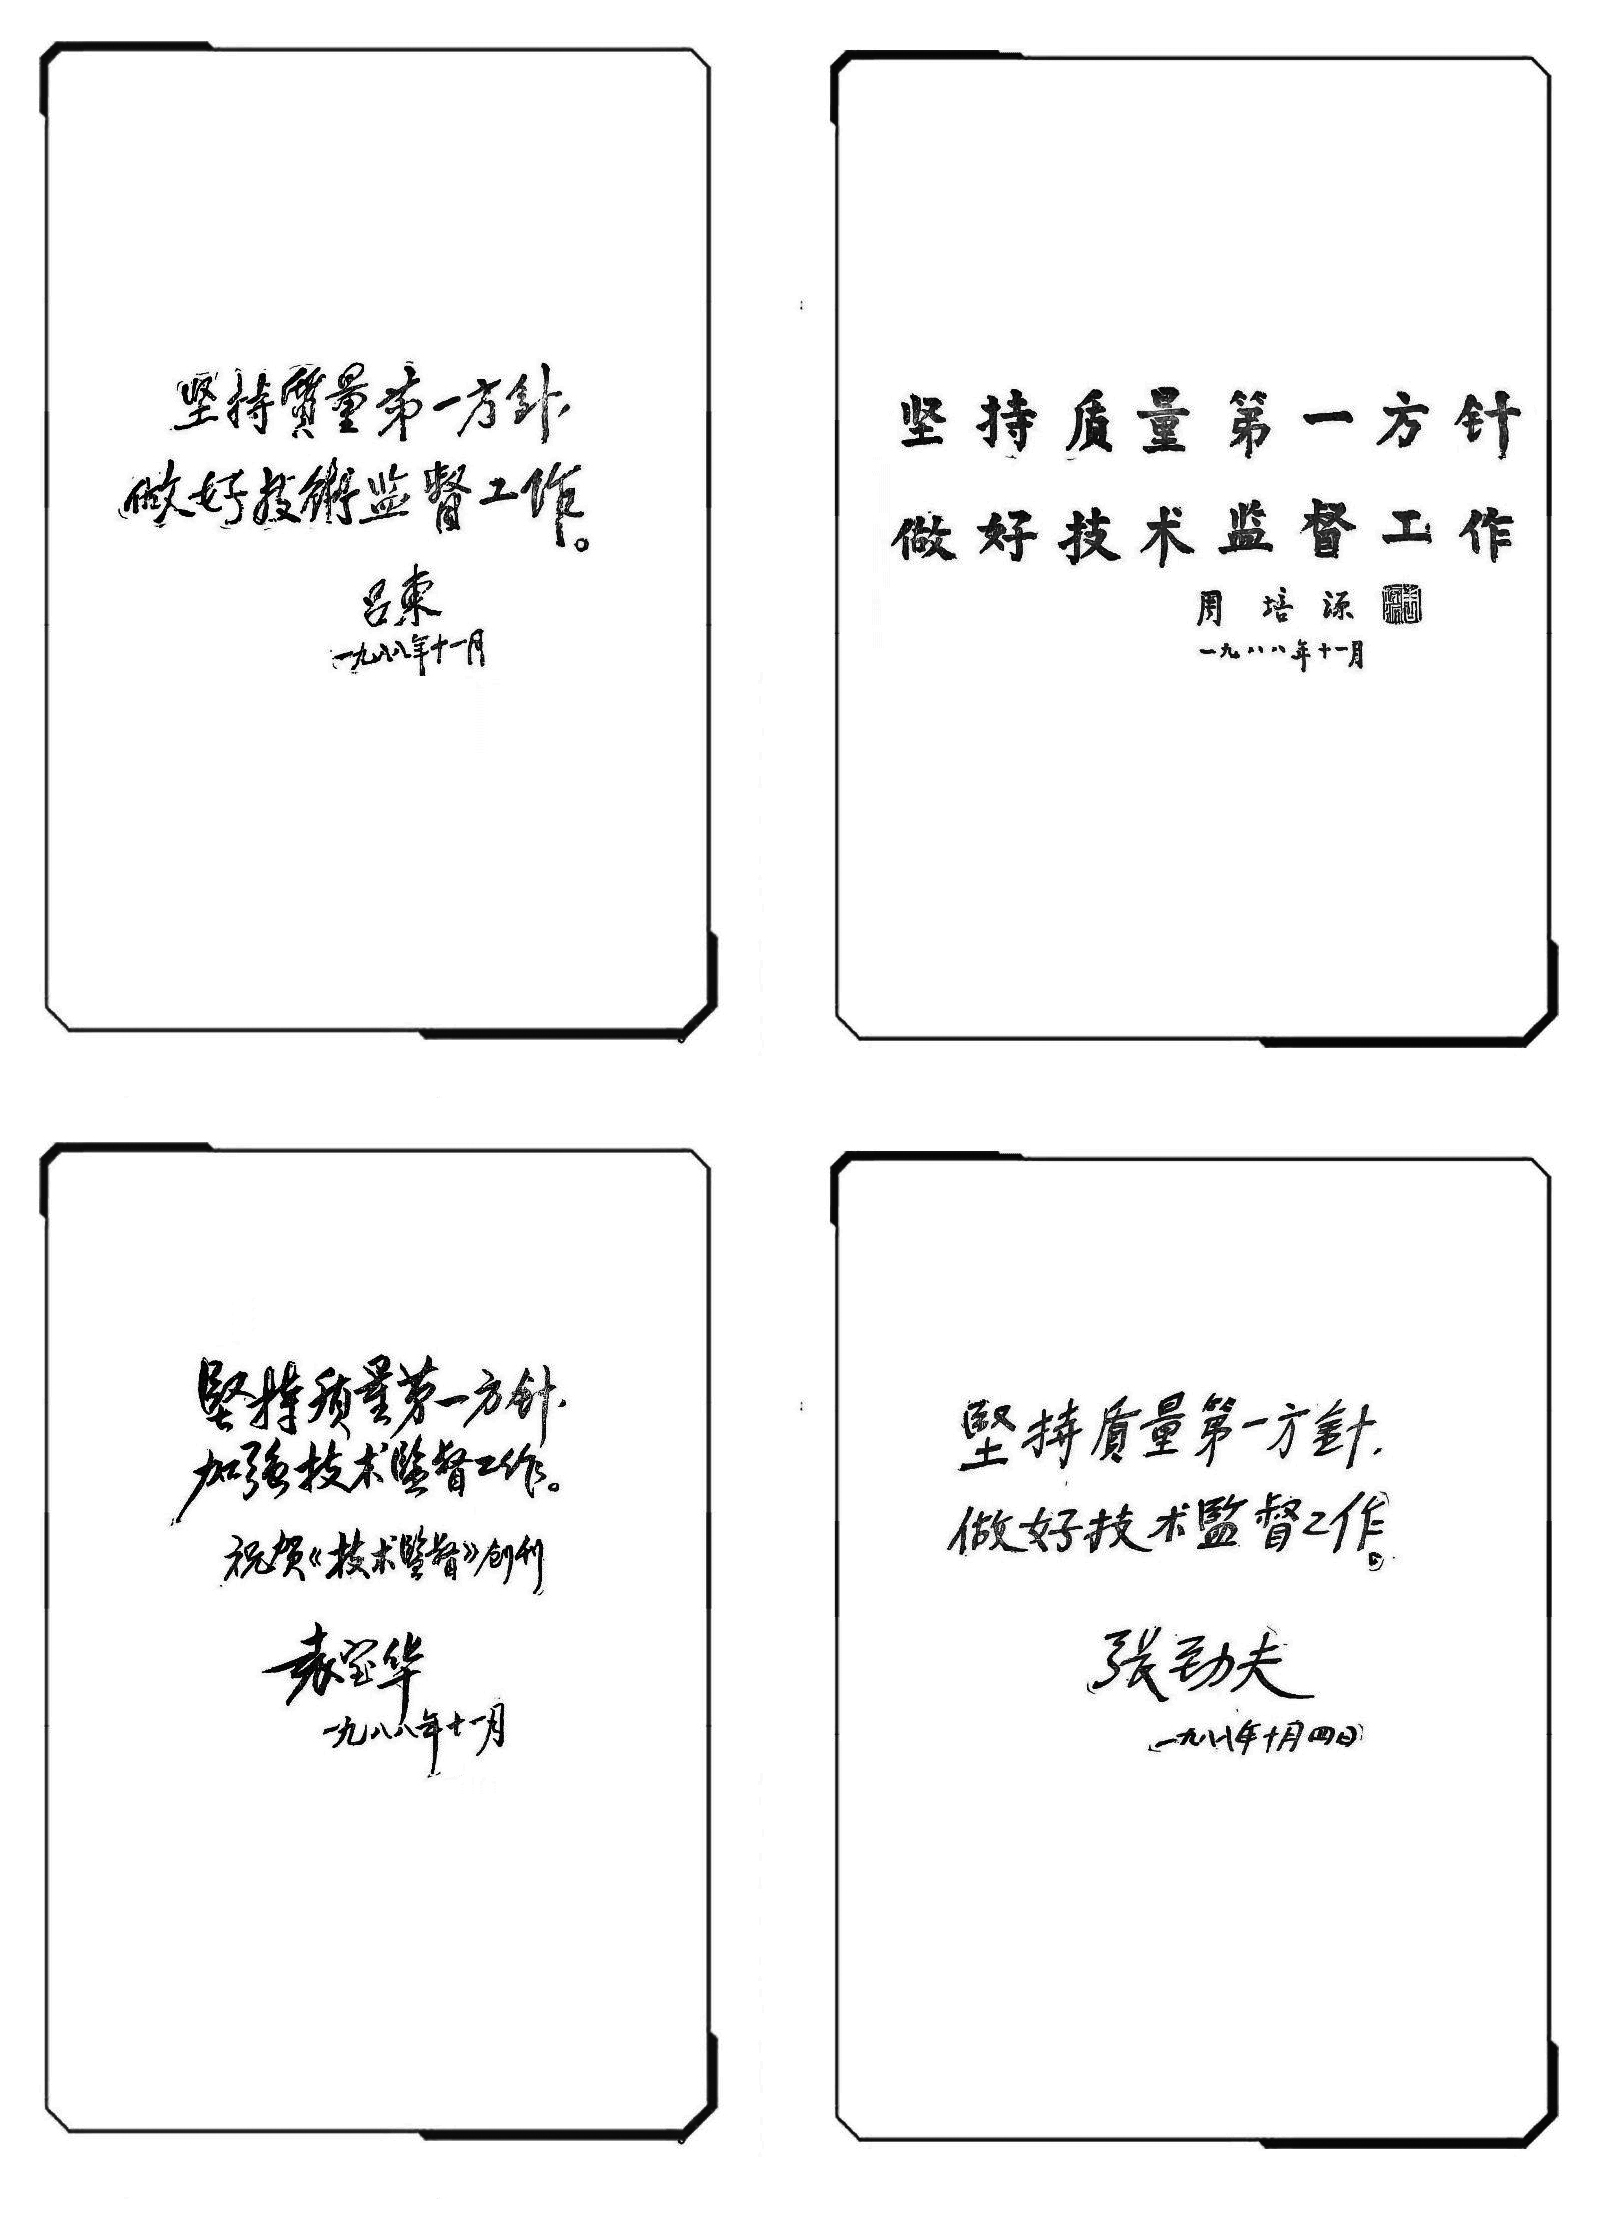 坚持質量第一方針，
做好技術监督工作。
吕東
一九八八年十一月
坚持质量第一方针
做好技术监督工作
周培源
一九八八年十一月
堅持质量第一方針，
加强技术監督工作。
祝贺《技术監督》创刊
袁宝华
一九八八年十一月
堅持質量第一方針，
做好技术監督工作。
张劲夫
一九八八年十月四日